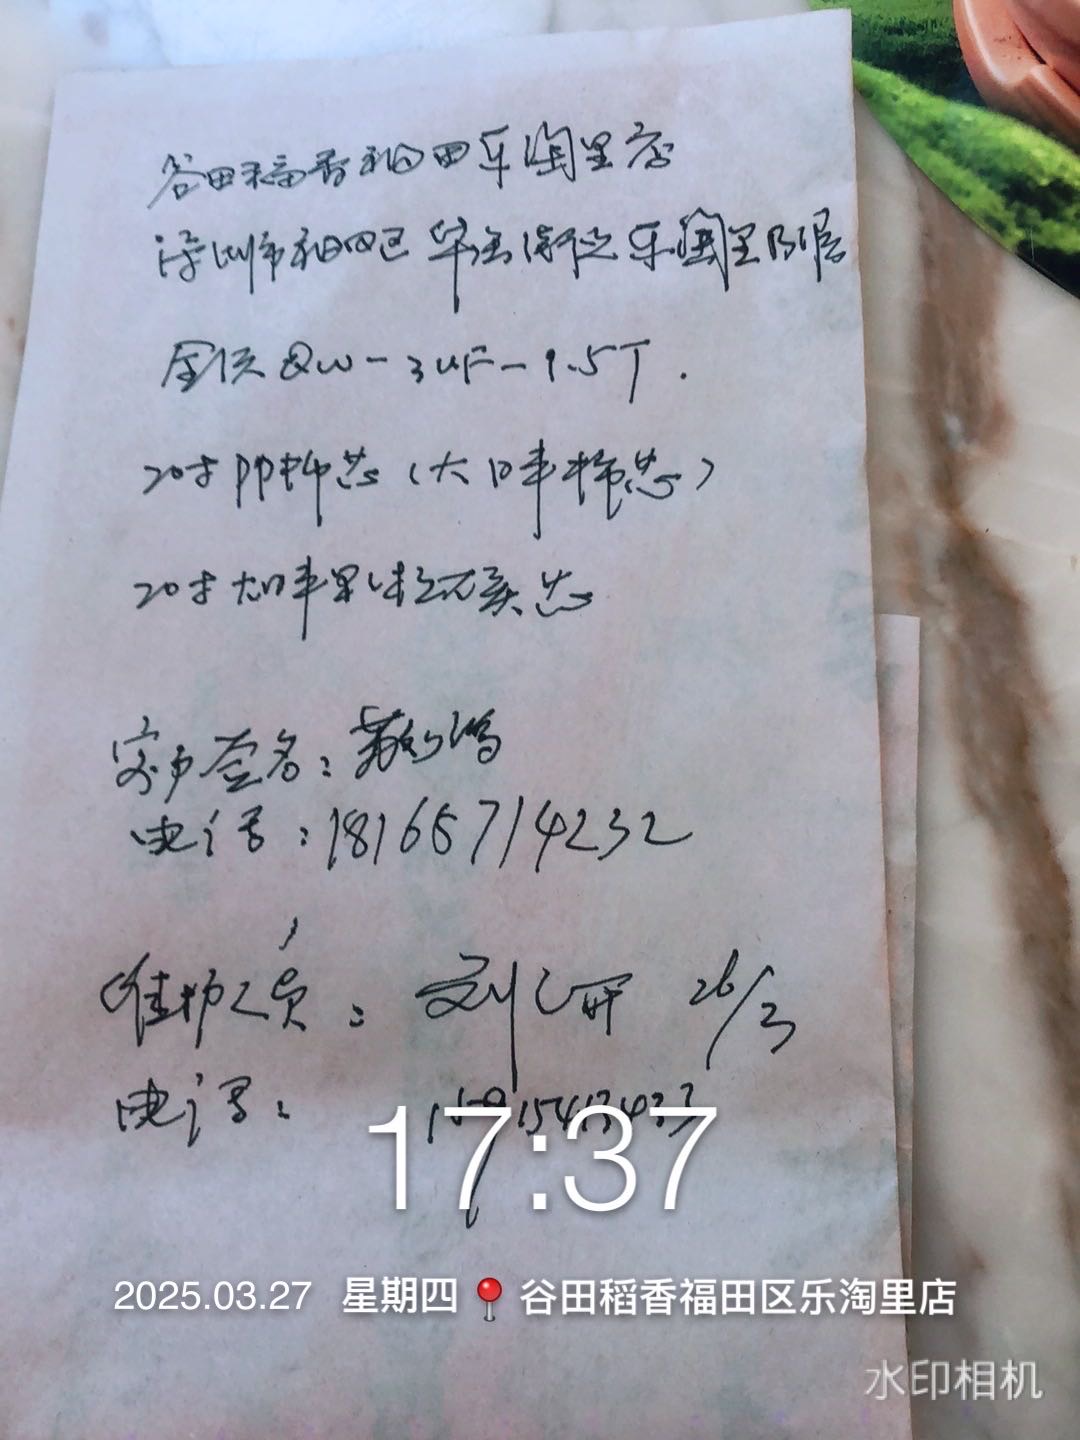 谷田稻香福田乐淘里店
深圳市福田区华富街道乐淘里
全侠QW-3UF-1.5T.
20寸PP棉芯(大口平棉芯)
20寸大口平 芯
客户签名:
电话:18165714232
维护人员:刘 26/3
电话:
17:37
2025.03.27 星期四 谷田稻香福田区乐淘里店
水印相机